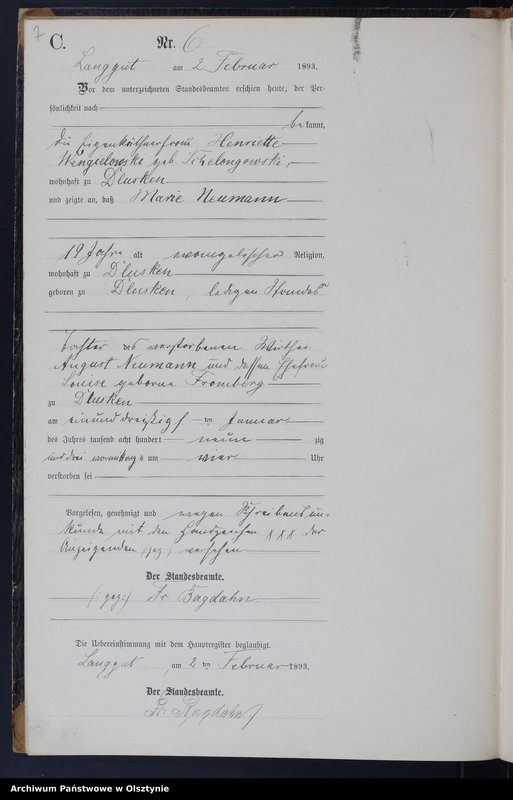 7
C.
Nr. 6
Langgut am 2. Februar 1893.
Vor dem unterzeichneten Standesbeamten erschien heute, der Per-
sönlichkeit nach
bekannt,
die Eigenkäthnerfrau Henriette
Wengielowski geb.
wohnhaft zu D'lusken
und zeigte an, daß Marie Neumann
19 Jahre alt evangelischer Religion,
wohnhaft zu D'lusken
geboren zu D'lusken, ledigen Standes
Tochter des verstorbenen Wirthen
August Neumann und dessen Ehefrau
Louise geborne Fromberg
zu D'lusken
am einunddreißigsten Januar
des Jahres tausend acht hundert neunzig
und drei Vormittags um vier Uhr
verstorben sei
Vorgelesen, genehmigt und wegen Schreibensun-
kunde mit den Handzeichen XXX der
Anzeigenden (gez.) versehen
Der Standesbeamte.
(: gez:) Fr. Bagdahn.
Die Uebereinstimmung mit dem Hauptregister beglaubigt.
Langgut, am 2ten Februar 1893.
Der Standesbeamte.
Fr. Bagdahn
Archiwum Państwowe w Olsztynie